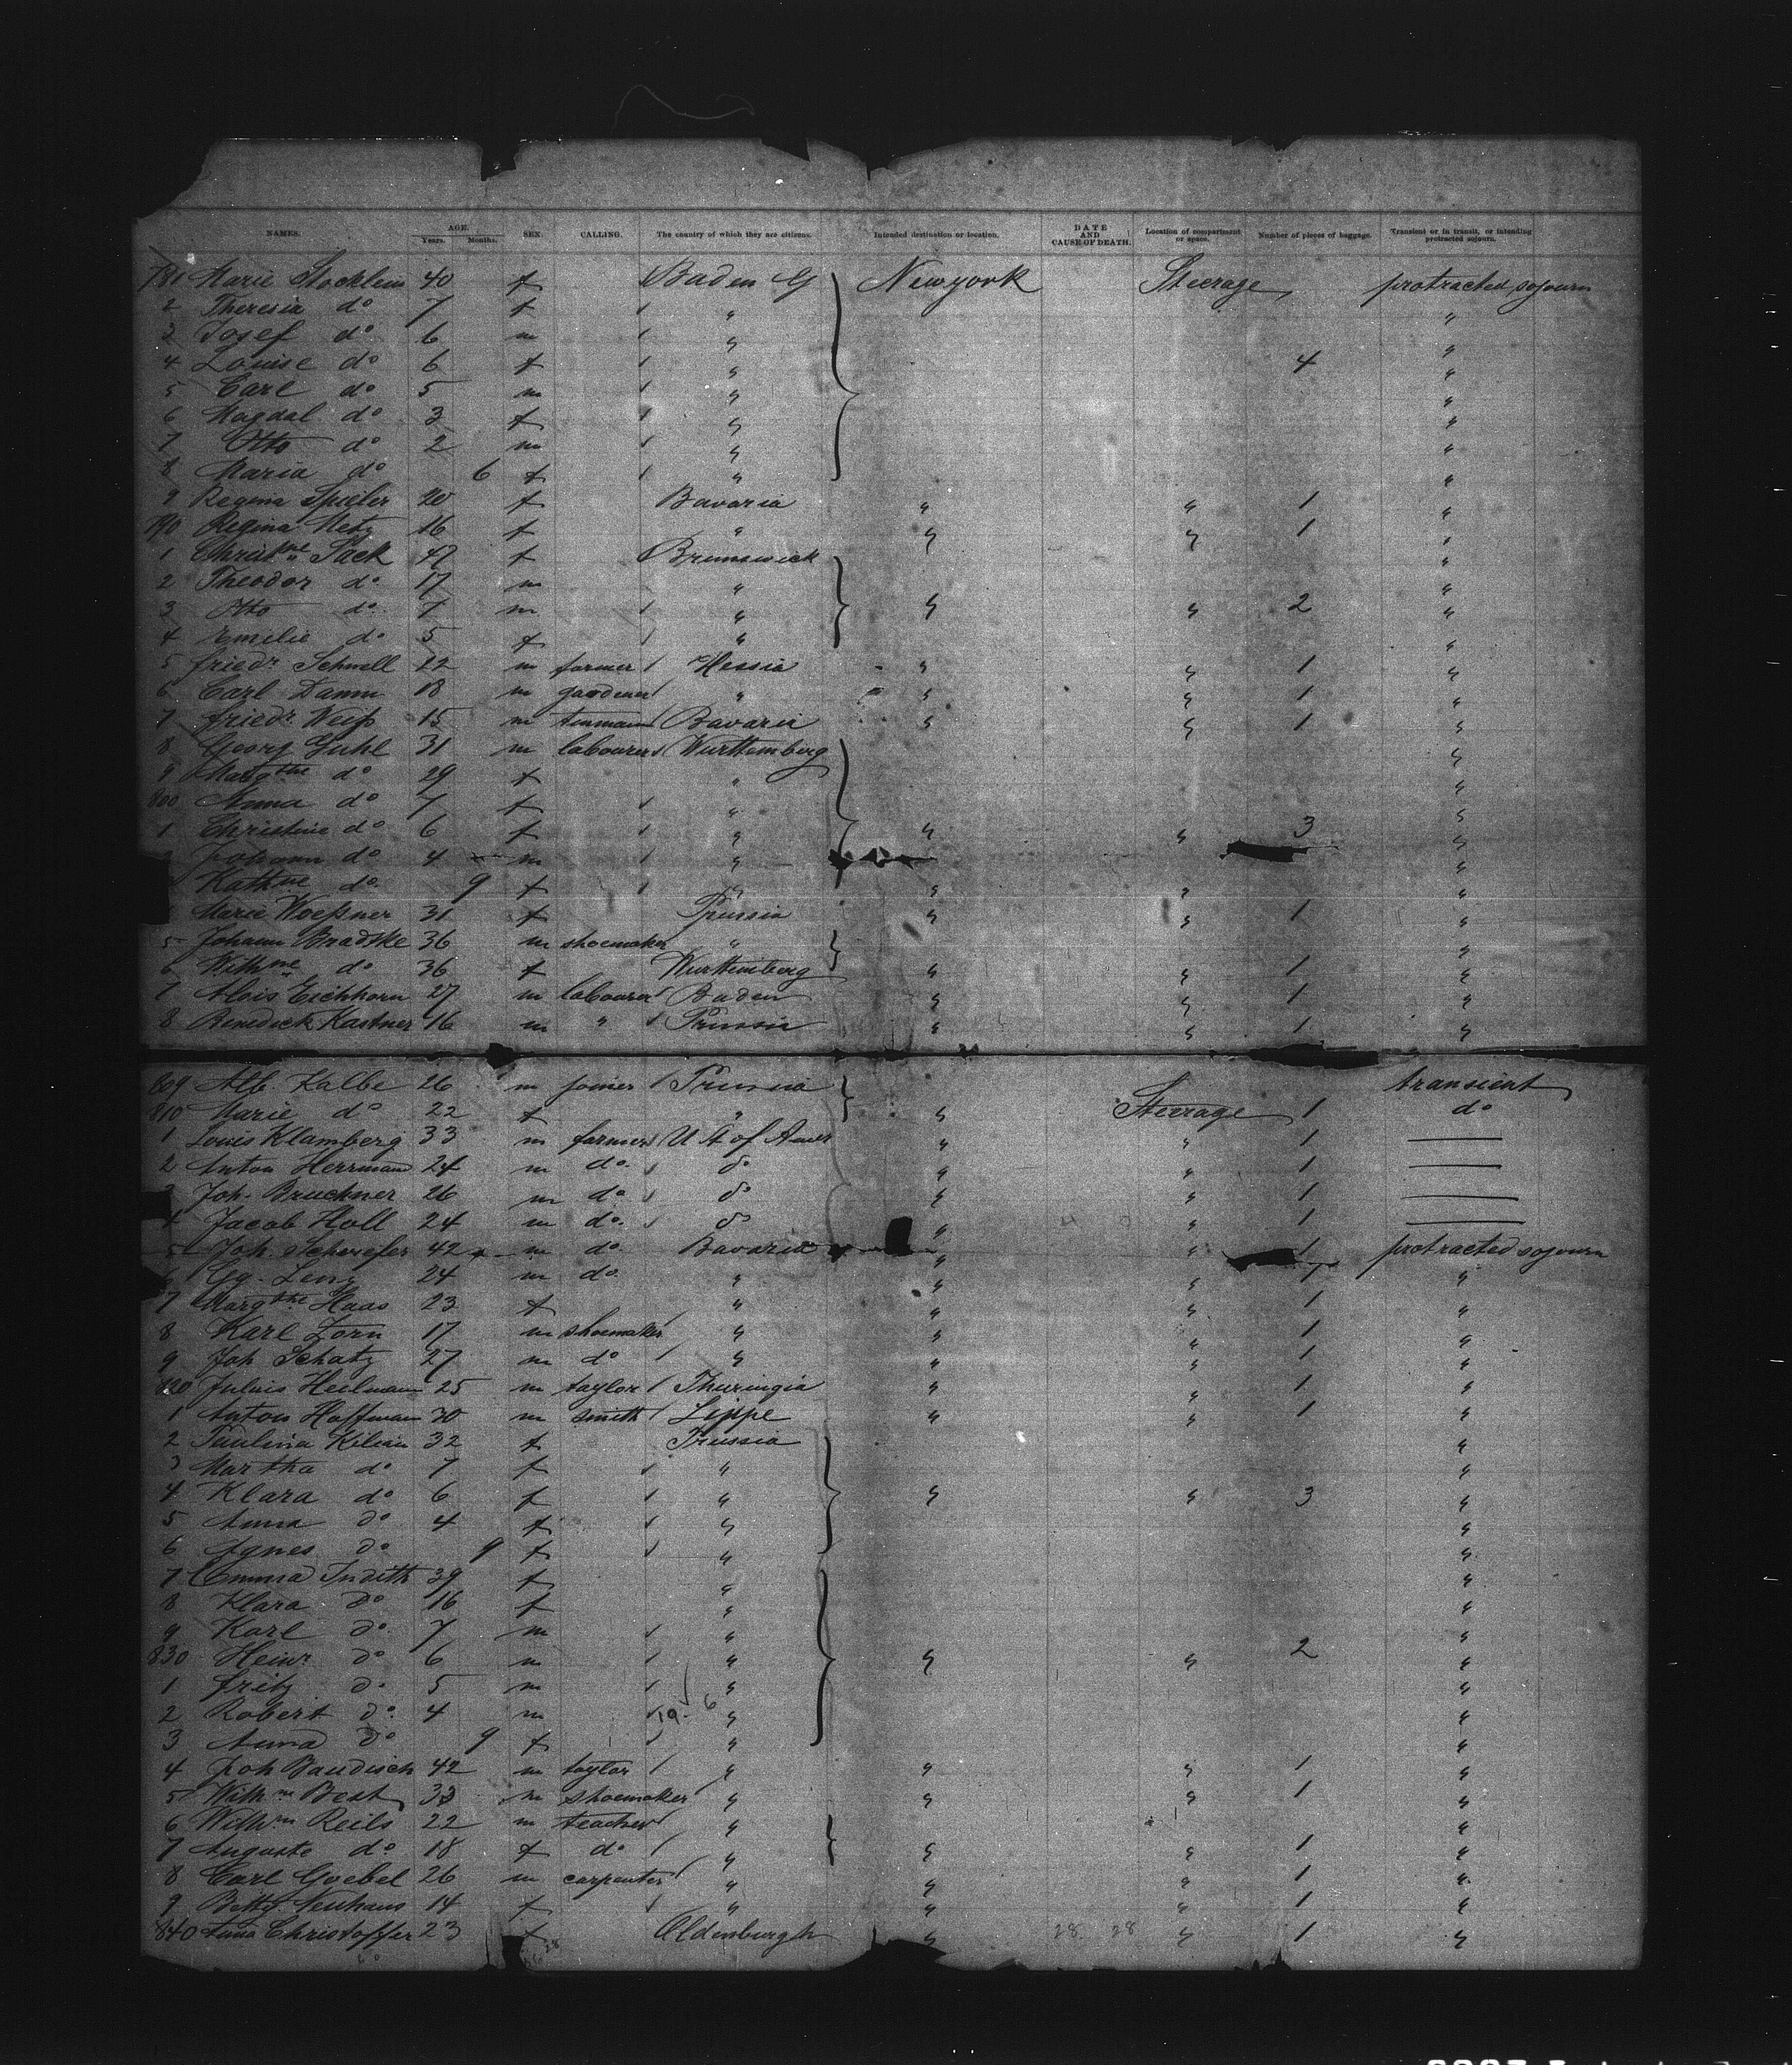 NAMES. AGE. SEX. CALLING. The country of which they are citizens. Intended destination or location. DATE AND CAUSE OF DEATH. Location of compartment or space. Number of pieces of baggage. Transient or in transit, or intending protracted sojourn.
Years. Months.
781 Marie Stocklein 40 f Baden G Newyork Steerage, protracted sojourn
2 Theresia do 7 f " "
3 Josef do 6 m " "
4 Louise do 6 f " 4 "
5 Carl do 5 m " "
6 Magdal do 3 f " "
7 Otto do 2 m " "
8 Maria do 6 f " "
9 Regina Spieler 20 f Bavaria " " 1 "
790 Regina Metz 16 f " " " 1 "
1 Christne Sack 47 f Brunswick "
2 Theodor do 17 m " "
3 Otto do 7 m " " " 2 "
4 Emilie do 5 f " "
5 friedr Schnell 22 m farmer Hessia " " 1 "
6 Carl Damm 18 m gardener " " " 1 "
7 friedr Weiß 15 m tinmann Bavaria " " 1 "
8 Georg Guhl 31 m labourer Wurttemberg "
9 Margthe do 29 f " "
800 Anna do 7 f " "
1 Christine do 6 f " " " 3 "
2 Johann do 4 m " "
Kathne do 9 f " " " "
Marie Woeßner 31 f Prussia " " 1 "
5 Johann Bradtke 36 m shoemaker " "
6 Wilhme do 36 f Wurttemberg " " 1 "
7 Alois Eichhorn 27 m labourer Baden " " 1 "
8 Benedick Kastner 16 m " Prussia " " 1 "
809 Alb. Kalbe 26 m joiner Prussia transient
810 Marie do 22 f " " Steerage 1 do
1 Louis Klamberg 33 m farmer U St of Amer " " 1 —
2 Anton Herrman 24 m do. do " " 1 —
3 Joh. Bruckner 26 m do do " " 1 —
4 Jacob Holl 24 m do. do " " 1 —
5 Joh. Scheiefer 42 m do Bavaria " " 1 protracted sojourn
6 Gg. Leng 24 m do. " " " 1 "
7 Margthe Haas 23 f " " " 1 "
8 Karl Zorn 17 m shoemaker " " " 1 "
9 Joh Schatz 27 m do " " " 1 "
820 Julius Heilmann 25 m taylor Thuringia " " 1 "
1 Anton Hoffman 30 m smith Lippe " " 1 "
2 Paulina Kilian 32 f Prussia "
3 Martha do 7 f " "
4 Klara do 6 f " " " 3 "
5 Anna do 4 f " "
6 Agnes do 9 f " "
7 Emma Indith 39 f " "
8 Klara do 16 f " "
9 Karl do 7 m " 2 "
830 Heinr do 6 m " " " "
1 fritz do 5 m " "
2 Robert do 4 m " "
3 Anna do 9 f " "
4 Joh Baudisch 42 m taylor " " " 1 "
5 Wilhm Best 33 m shoemaker " " " 1 "
6 Wilhm Reils 22 m teacher " "
7 Auguste do 18 f do " " " 1 "
8 Carl Goebel 26 m carpenter " " " 1 "
9 Betty Neuhaus 14 f " " " 1 "
840 Anna Christoffer 23 f Oldenburgh 28 28 " " 1 "